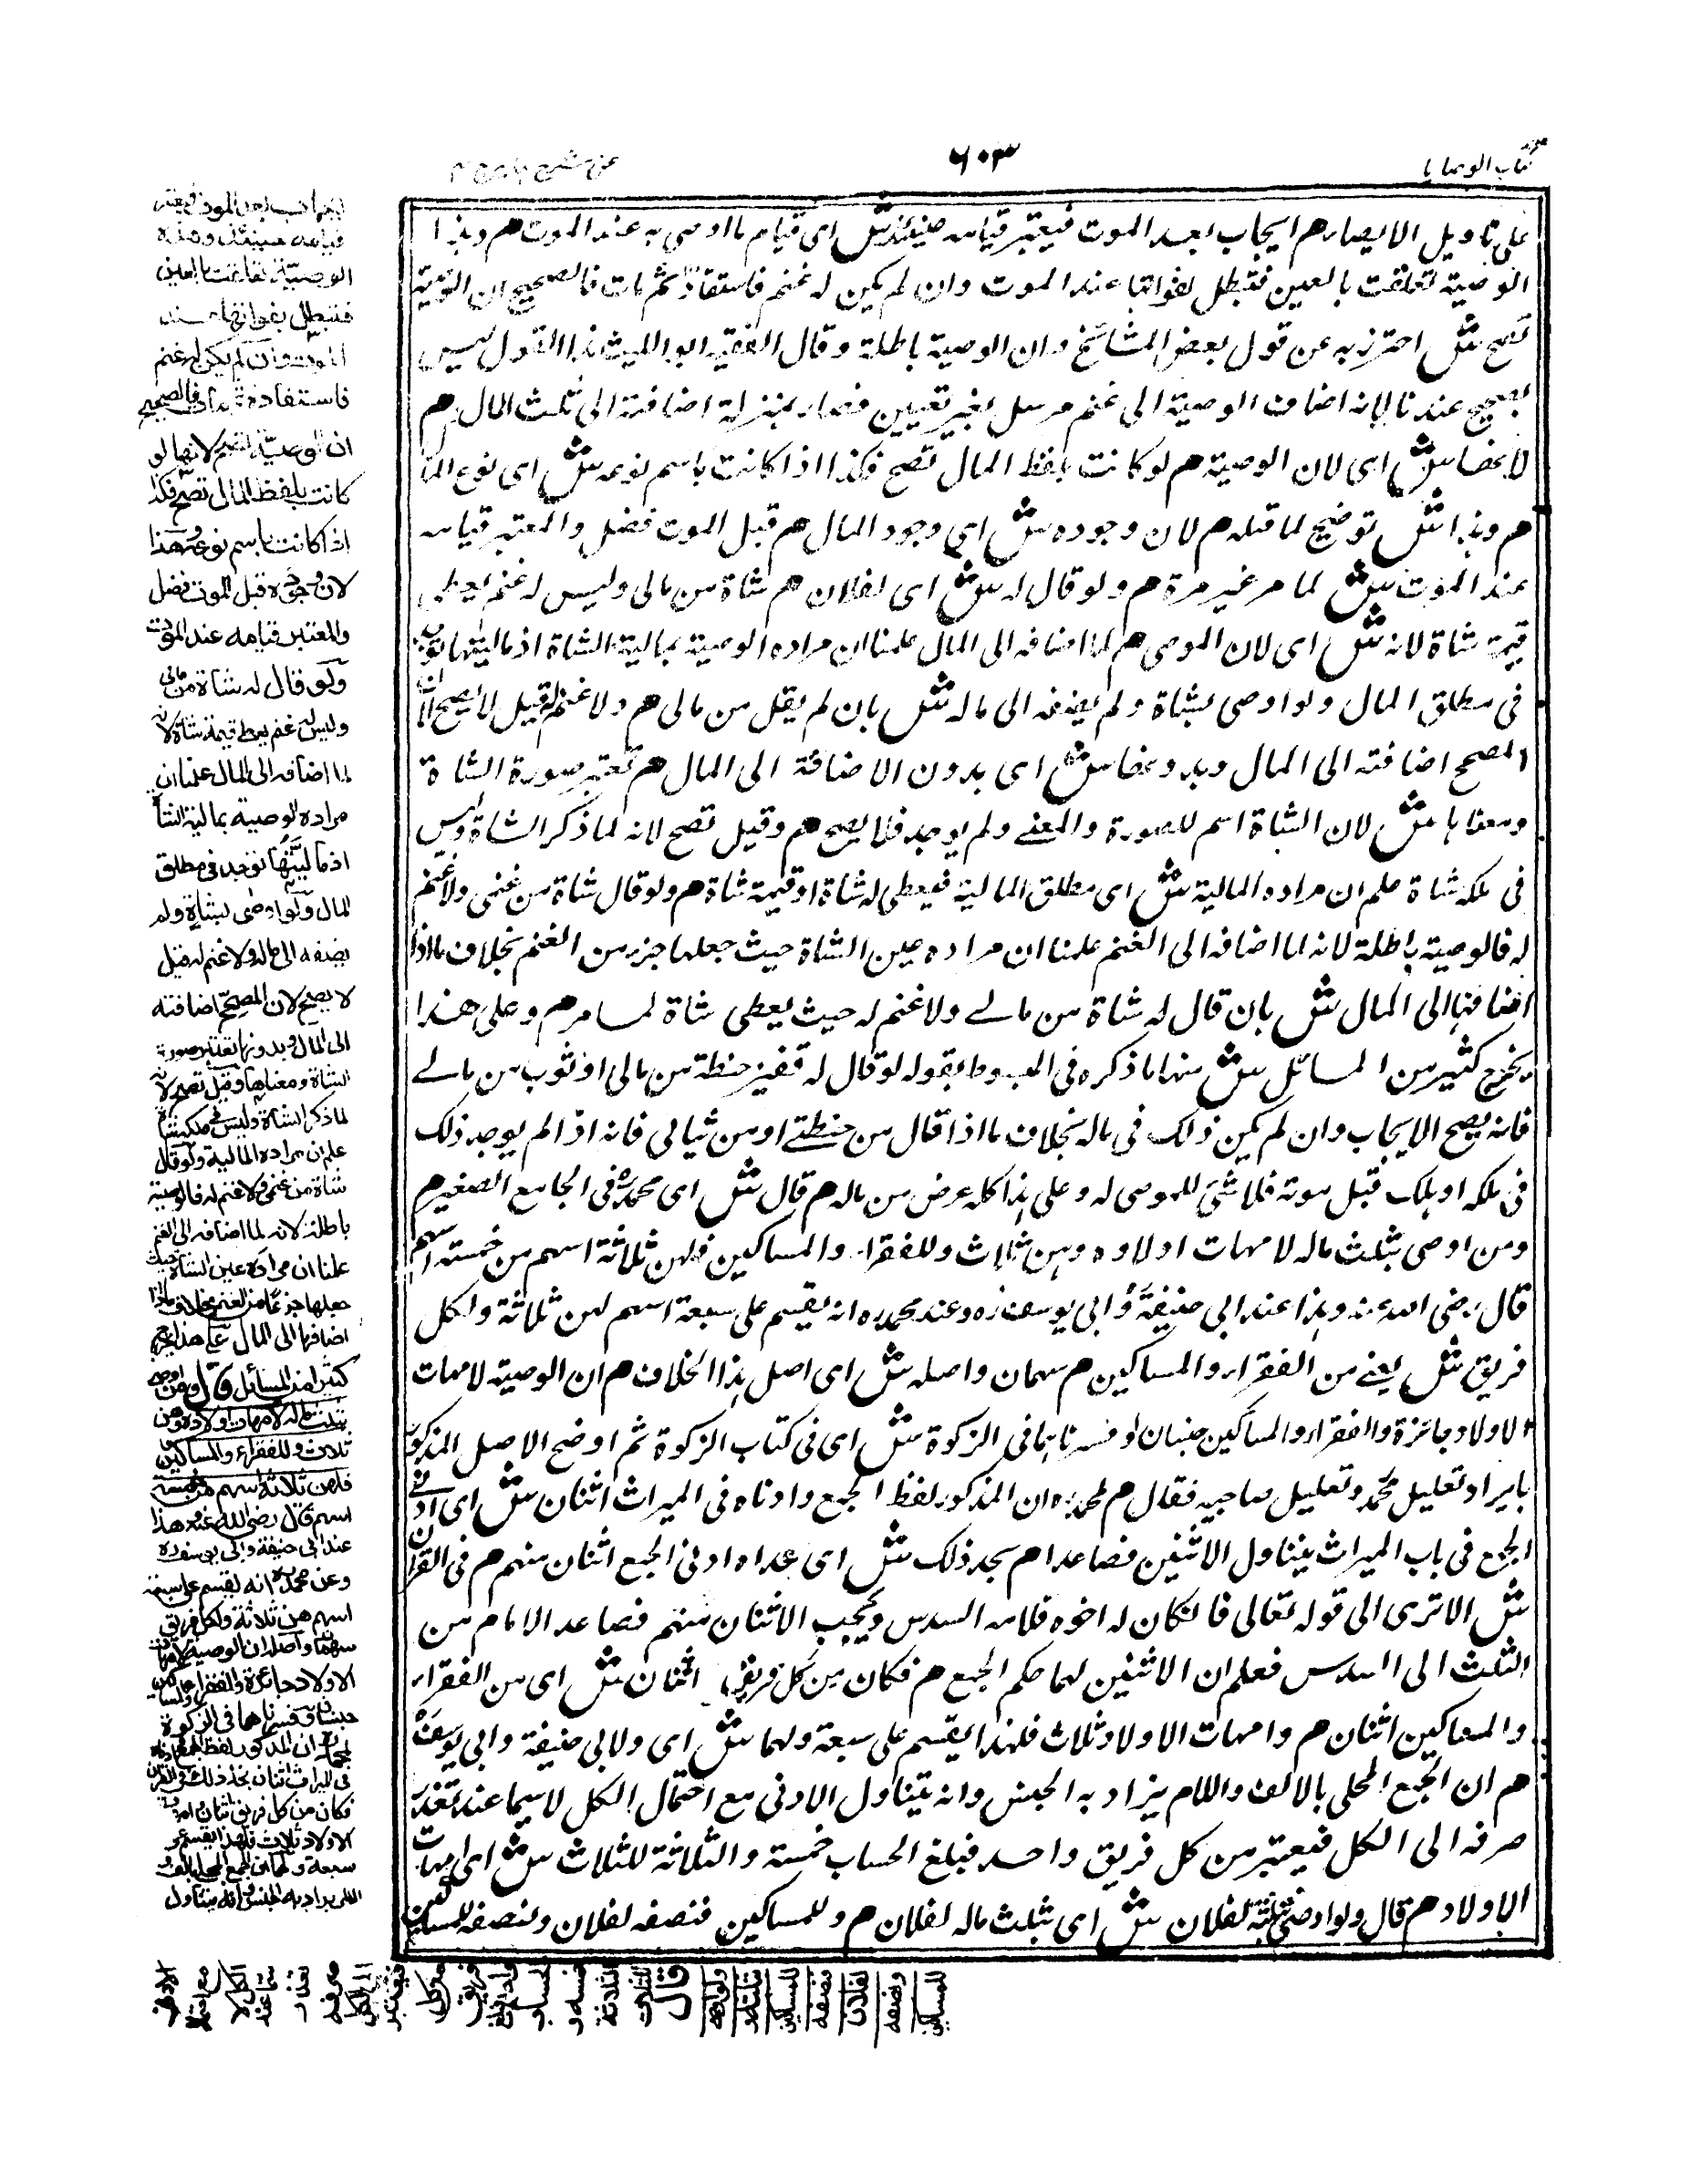 كتاب الوصايا
٦٠٣
على تاويل الايصار هم ايجاب بعد الموت فيعتبر قيامه حينئذ ش اى قيام ما اوصى به عند الموت هم وهذا
الوصية تعلقت بالعين فتبطل بفواتها عند الموت وان لم يكن له غنم فاستفاد ثم مات فالصحيح ان الوصية
تصح ش احترز به عن قول بعض المشائخ وان الوصية باطلة وقال الفقيه ابو الليث هذا القول ليس
بصحيح عندنا لانه اضاف الوصية الى غنم مرسل بغير تعيين فصار بمنزلة اضافته الى ثلث المال هم
لانها ش اى لان الوصية هم لو كانت بلفظ المال تصح فكذا اذا كانت باسم نوعه ش اى نوع المال
هم وهذا ش توضيح لما قبله هم لان وجوده ش اى وجود المال هم قبل الموت فضل والمعتبر قيامه
عند الموت ش لما مر غير مرة هم ولو قال له ش اى لفلان هم شاة من مالى وليس له غنم يعطى
قيمة شاة لانه ش اى لان الموصى هم لما اضافه الى المال علمنا ان مراده الوصية بمالية الشاة اذ ماليتها توجد
فى مطلق المال ولو اوصى بشاة ولم يضفه الى ماله ش بان لم يقل من مالى هم ولا غنم له قيل لا يصح لان
المصحح اضافته الى المال وبدونها ش اى بدون الاضافة الى المال هم تعتبر صورة الشاة
ومعناها ش لان الشاة اسم للصورة والمعنے ولم يوجد فلا يصح هم وقيل تصح لانه لما ذكر الشاة وليس
فى ملكه شاة علم ان مراده المالية ش اى مطلق المالية فيعطى له شاة او قيمة شاة هم ولو قال شاة من غنمى ولا غنم
له فالوصية باطلة لانه لما اضافه الى الغنم علمنا ان مراده عين الشاة حيث جعلها جزء من الغنم بخلاف ما اذا
اضافها الى المال ش بان قال له شاة من مالے ولا غنم له حيث يعطى شاة لما مر هم وعلى هذا
يخرج كثير من المسائل ش منها ما ذكره فى المبسوط بقوله لو قال له قفيز حنطة من مالى او ثوب من مالے
فانه يصح الايجاب وان لم يكن ذلك فى ماله بخلاف ما اذا قال من حنطتے او من ثيابى فانه اذا لم يوجد ذلك
فى ملكه او هلك قبل موته فلا شئ للموصى له وعلى هذا كله عرض من ماله هم قال ش اى محمد ره فى الجامع الصغير هم
ومن اوصى بثلث ماله لامهات اولاده وهن ثلاث وللفقراء والمساكين فلهن ثلاثة اسهم من خمسة اسهم
قال رضى الله عنه وهذا عند ابى حنيفة و ابى يوسف ره وعند محمد ره انه يقسم على سبعة اسهم لهن ثلاثة ولكل
فريق ش يعنے من الفقراء والمساكين هم سهمان واصله ش اى اصل هذا الخلاف هم ان الوصية لامهات
الاولاد جائزة والفقراء والمساكين جنسان وفسرناهما فى الزكوة ش اى فى كتاب الزكوة ثم اوضح الاصل المذكور
بايراد تعليل محمد وتعليل صاحبيه فقال هم لمحمد ره ان المذكور لفظ الجمع وادناه فى الميراث اثنان ش اى ادنے
الجمع فى باب الميراث يتناول الاثنين فصاعدا هم نجد ذلك ش اى عداه ادنى الجمع اثنان منهم هم فى القران
ش الا ترى الى قوله تعالى فان كان له اخوة فلامه السدس ويحجب الاثنان منهم فصاعدا الام من
الثلث الى السدس فعلم ان الاثنين لهما حكم الجمع هم فكان من كل فريق اثنان ش اى من الفقراء
والمساكين اثنان هم وامهات الاولاد ثلاث فلهذا يقسم على سبعة ولهما ش اى ولابى حنيفة وابى يوسف ره
هم ان الجمع المحلى بالالف واللام يراد به الجنس وانه يتناول الادنى مع احتمال الكل لا سيما عند تعذر
صرفه الى الكل فيعتبر من كل فريق واحد فبلغ الحساب خمسة والثلاثة للثلاث ش اى امهات
الاولاد هم قال ولو اوصى بثلثه لفلان ش اى بثلث ماله لفلان هم وللمساكين فنصفه لفلان ونصفه للمساكين
ايجاب بعد الموت فيعتبر
قيامه حينئذ وهذه
الوصية تعلقت بالعين
فتبطل بفواتها عند
الموت وان لم يكن له غنم
فاستفاده ثم مات فالصحيح
ان الوصية تصح لانها لو
كانت بلفظ المال تصح فكذا
اذا كانت باسم نوعه وهذا
لان وجوده قبل الموت فضل
والمعتبر قيامه عند الموت
ولو قال له شاة من مالى
وليس له غنم يعطى قيمة شاة لانه
لما اضافه الى المال علمنا ان
مراده الوصية بمالية الشاة
اذ ماليتها توجد فى مطلق
المال ولو اوصى بشاة ولم
يضفه الى ماله ولا غنم له قيل
لا يصح لان المصحح اضافته
الى المال وبدونها تعتبر صورة
الشاة ومعناها وقيل تصح لانه
لما ذكر الشاة وليس فى ملكه شاة
علم ان مراده المالية ولو قال
شاة من غنمى ولا غنم له فالوصية
باطلة لانه لما اضافه الى الغنم
علمنا ان مراده عين الشاة حيث
جعلها جزءا من الغنم بخلاف ما اذا
اضافها الى المال وعلى هذا يخرج
كثير من المسائل قال ومن اوصى
بثلث ماله لامهات اولاده وهن
ثلاث وللفقراء والمساكين
فلهن ثلاثة اسهم من خمسة
اسهم قال رضى الله عنه وهذا
عند ابى حنيفة وابى يوسف ره
وعن محمد ره انه يقسم على سبعة
اسهم لهن ثلاثة ولكل فريق
سهمان واصله ان الوصية لامهات
الاولاد جائزة والفقراء والمساكين
جنسان وفسرناهما فى الزكوة
لمحمد ره ان المذكور لفظ الجمع وادناه
فى الميراث اثنان نجد ذلك فى القران
فكان من كل فريق اثنان وامهات
الاولاد ثلاث فلهذا يقسم على
سبعة ولهما ان الجمع المحلى بالالف و
اللام يراد به الجنس وانه يتناول
الادنى
مع احتمال
الكل لا
سيما عند
تعذر
صرفه
الى الكل
فيعتبر
من كل
فريق
واحد فبلغ
الحساب
خمسة و
الثلاثة
للثلاث
قال
ولو اوصى
بثلثه
لفلان وللمساكين
فنصفه
لفلان
ونصفه
للمساكين